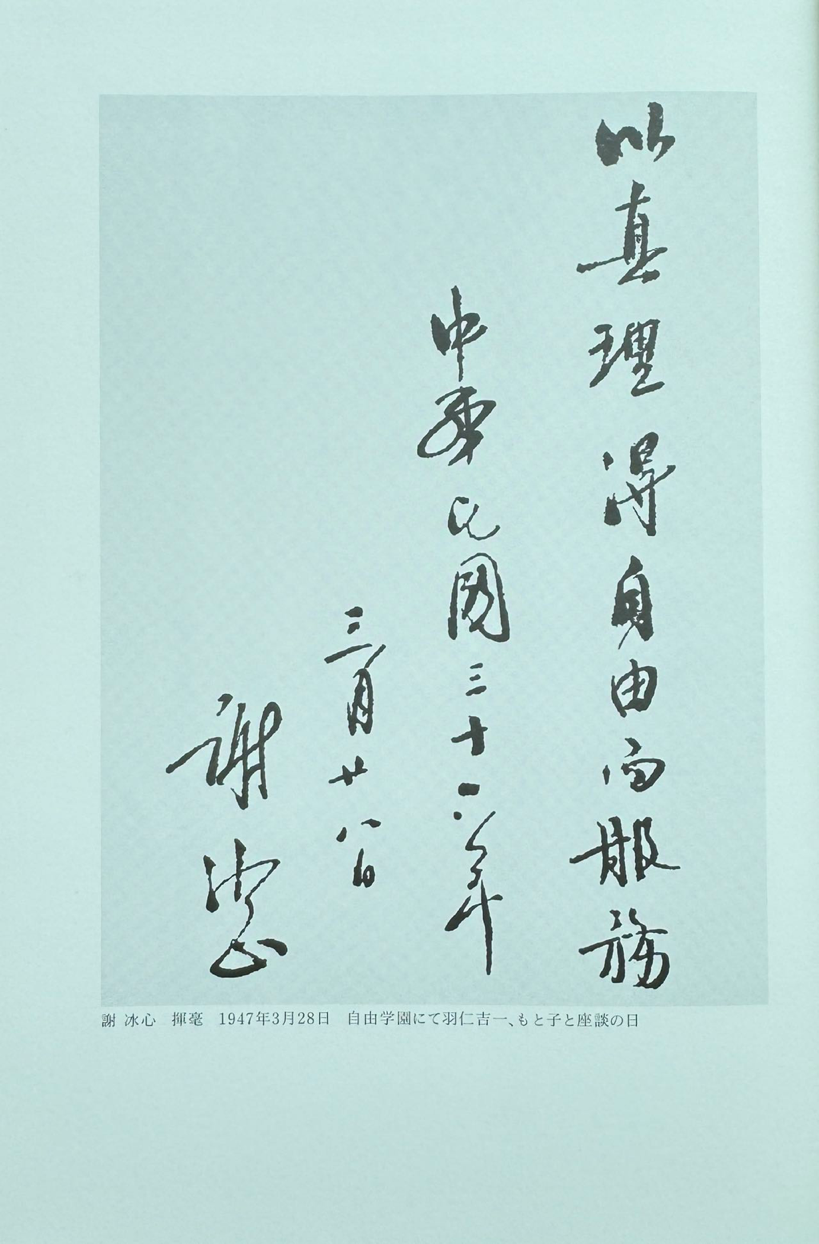 以真理得自由而服務
中華民國三十六年
三月廿八日
謝冰心
謝 冰心　揮毫　1947年3月28日　自由学園にて羽仁吉一、もと子と座談の日